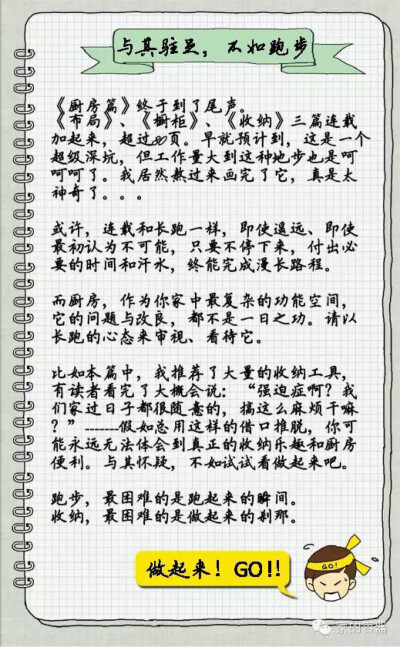 与其驻足，不如跑步
《厨房篇》终于到了尾声。
《布局》、《橱柜》、《收纳》三篇连载
加起来，超过80页。早就预计到，这是一个
超级深坑，但工作量大到这种地步也是呵
呵呵了。我居然熬过来画完了它，真是太
神奇了。。。
或许，连载和长跑一样，即使遥远、即使
最初认为不可能，只要不停下来，付出必
要的时间和汗水，终能完成漫长路程。
而厨房，作为你家中最复杂的功能空间，
它的问题与改良，都不是一日之功。请以
长跑的心态来审视、看待它。
比如本篇中，我推荐了大量的收纳工具，
有读者看完了大概会说：“强迫症啊？我
们家过日子都很随意的，搞这么麻烦干嘛
？”-------假如总用这样的借口推脱，你可
能永远无法体会到真正的收纳乐趣和厨房
便利。与其怀疑，不如试试看做起来吧。
跑步，最困难的是跑起来的瞬间。
收纳，最困难的是做起来的刹那。
GO!
做起来！GO!!
家的容器